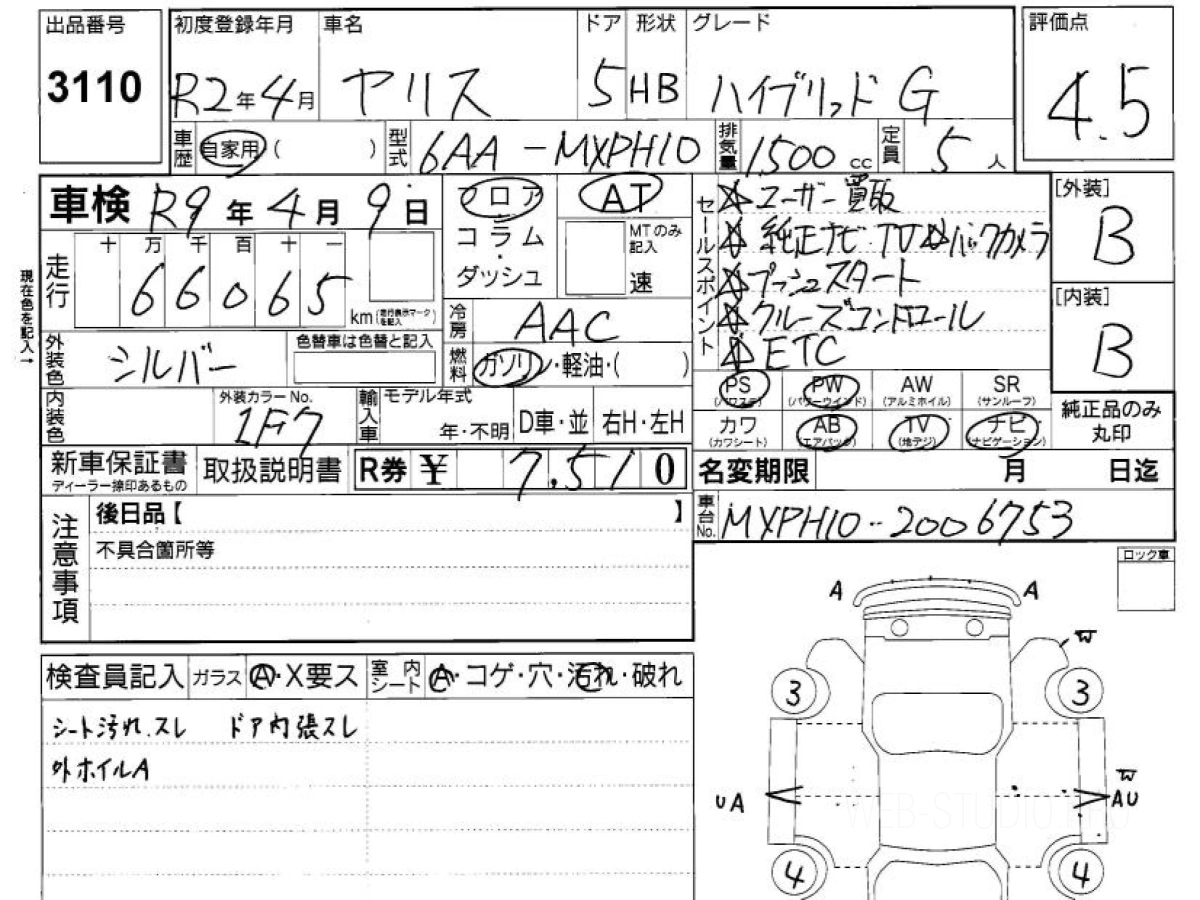 出品番号 初度登録年月 車名 ドア 形状 グレード 評価点
3110 R2年4月 ヤリス 5 HB ハイブリッド G 4.5
車歴 自家用 ( ) 型式 6AA-MXPH10 排気量 1,500 cc 定員 5人
車検 R9年4月9日 フロア AT セールスポイント ☆ユーザー買取 [外装]
コラム MTのみ記入 ☆純正ナビ・TV☆バックカメラ B
走行 十 万 千 百 十 一 ・ダッシュ 速 ☆プッシュスタート
66065 km (走行表示マークを記入) 冷房 AAC ☆クルーズコントロール [内装]
現在色を記入→ 外装色 シルバー 色替車は色替と記入 燃料 ガソリン・軽油・( ) ☆ETC B
PS (パワステ) PW (パワーウインド) AW (アルミホイル) SR (サンルーフ)
内装色 外装カラーNo. 1F7 輸入車 モデル年式 年・不明 D車・並 右H・左H カワ (カワシート) AB (エアバック) TV (地デジ) ナビ (ナビゲーション) 純正品のみ丸印
新車保証書 ディーラー捺印あるもの 取扱説明書 R券 ¥ 7,510 名変期限 月 日迄
注意事項 後日品【 】 車台No. MXPH10-2006753
不具合箇所等
ロック車
A A
W
検査員記入 ガラス A・X要ス 室内シート A・コゲ・穴・汚れ・破れ
3 3
シート汚れ.スレ ドア内張スレ
外ホイルA
W
UA AU
WEB-STUDIO.PRO
4 4